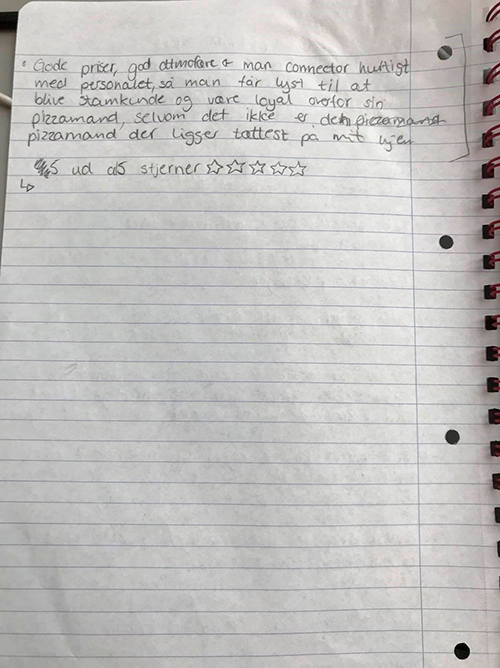 • Gode priser, god atmosfære & man connector hurtigt
med personalet, så man får lyst til at
blive stamkunde og være loyal overfor sin
pizzamand, selvom det ikke er den pizzamand
pizzamand der ligger tættest på mit hjem
5 ud af 5 stjerner ☆☆☆☆☆
↳